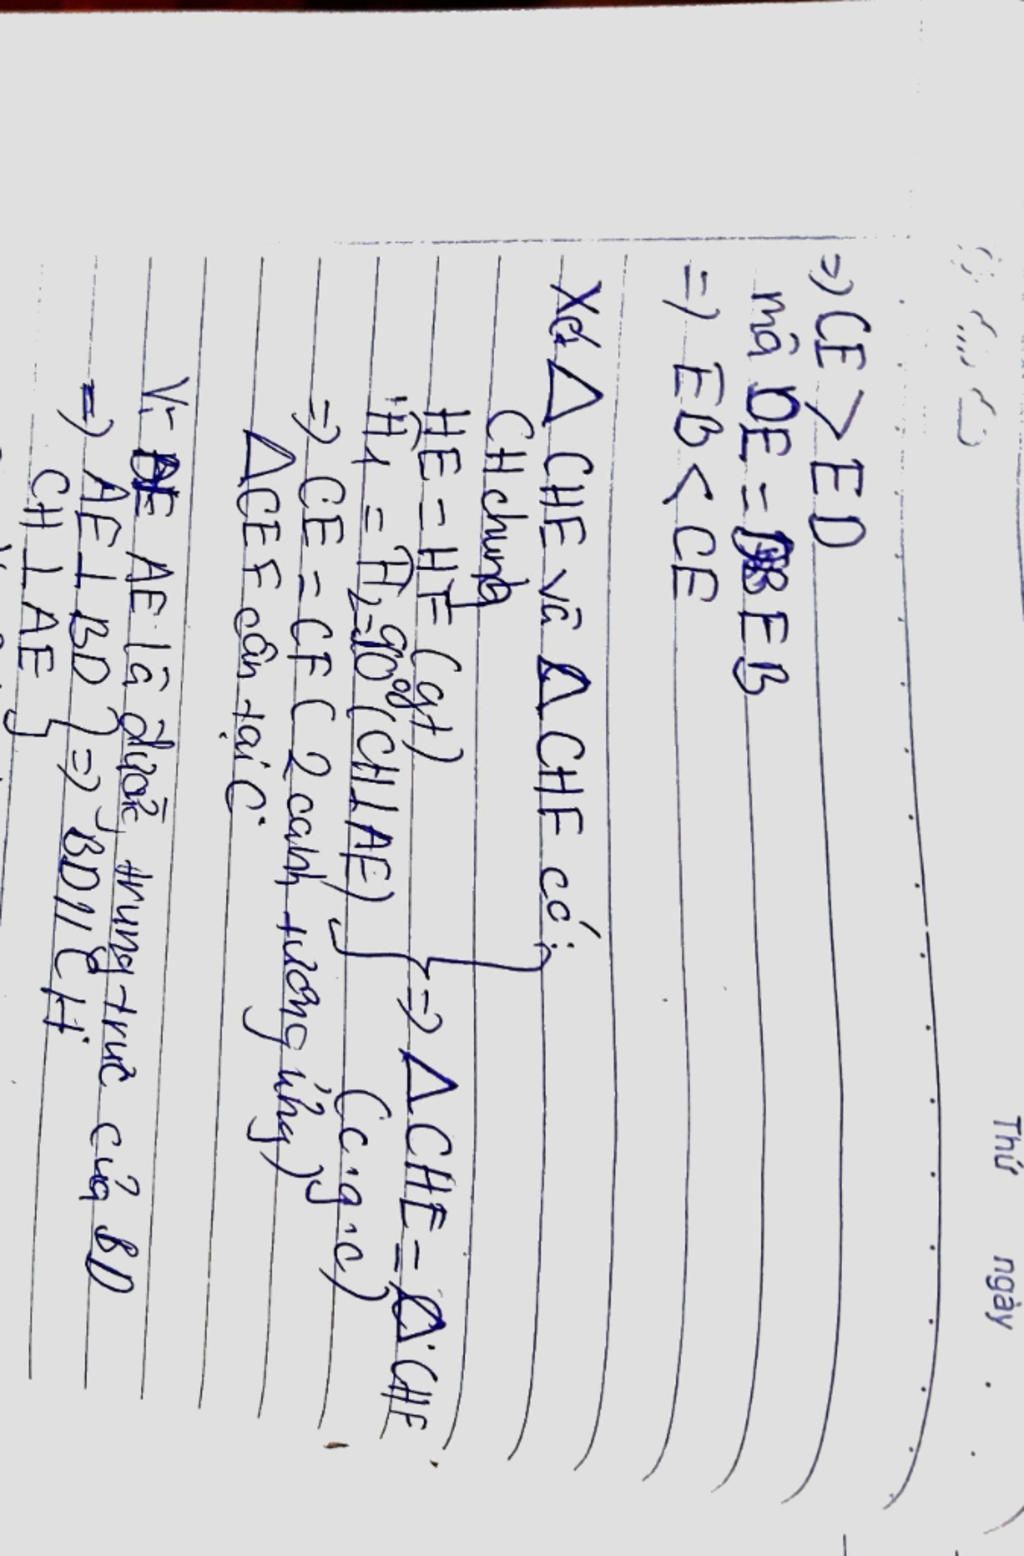 Thứ ngày
=> CE > ED
mà DE = EB
=> EB < CE
Xét Δ CHE và Δ CHF có:
CH chung
HE = HF (gt)
Ĥ1 = Ĥ2 = 90° (CH⊥AE) } => Δ CHE = Δ CHF
(c.g.c)
=> CE = CF (2 cạnh tương ứng)
Δ CEF cân tại C.
Vì AE là đường trung trực của BD
=> AE ⊥ BD } => BD // CH.
CH ⊥ AE